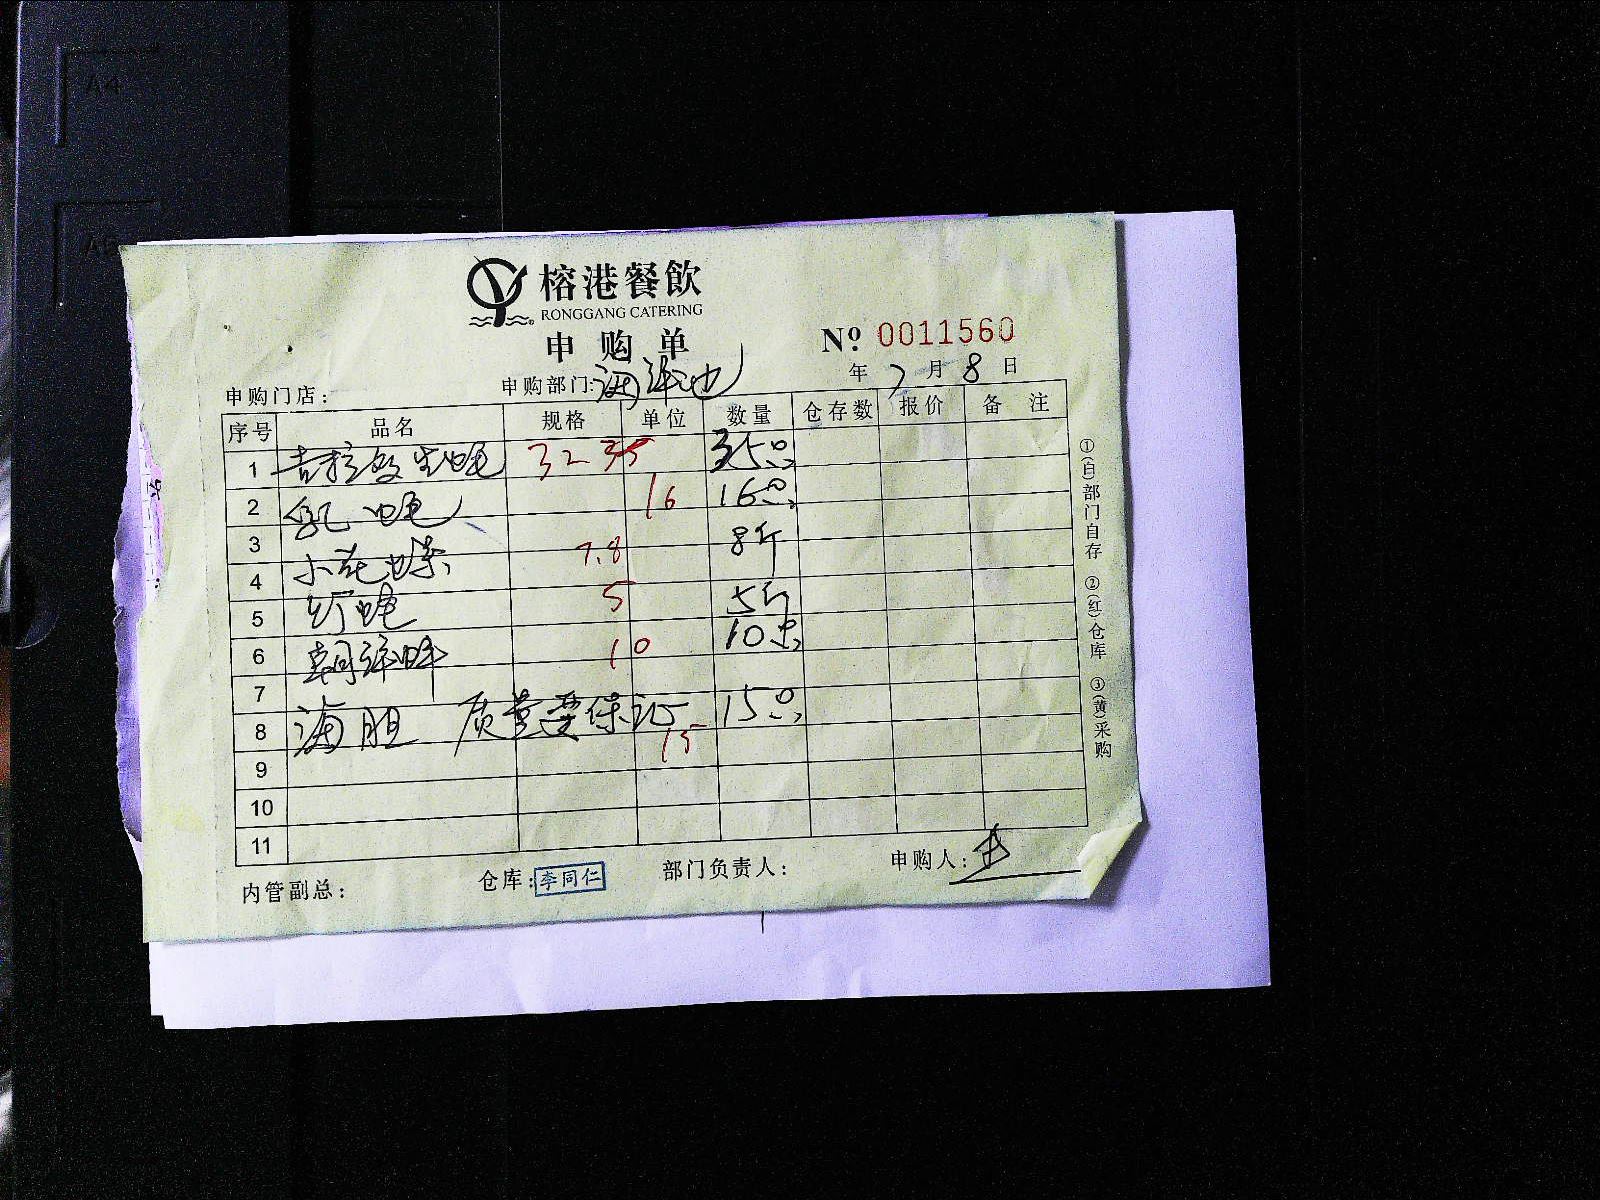 A4
榕港餐飲
RONGGANG CATERING
申购单
№ 0011560
申购门店： 申购部门: 海鲜池 年 7 月 8 日
序号 品名 规格 单位 数量 仓存数 报价 备 注
1 吉拉多生蚝 32 35 35只
2 乳蚝 16 16只
3
4 小花螺 7.8 8斤
5 5 5斤
6 朝鲜蚌 10 10只
7
8 海胆 质量要保证 15 15只
9
10
11
内管副总： 仓库: 李同仁 部门负责人： 申购人:
①(白)部门自存 ②(红)仓库 ③(黄)采购